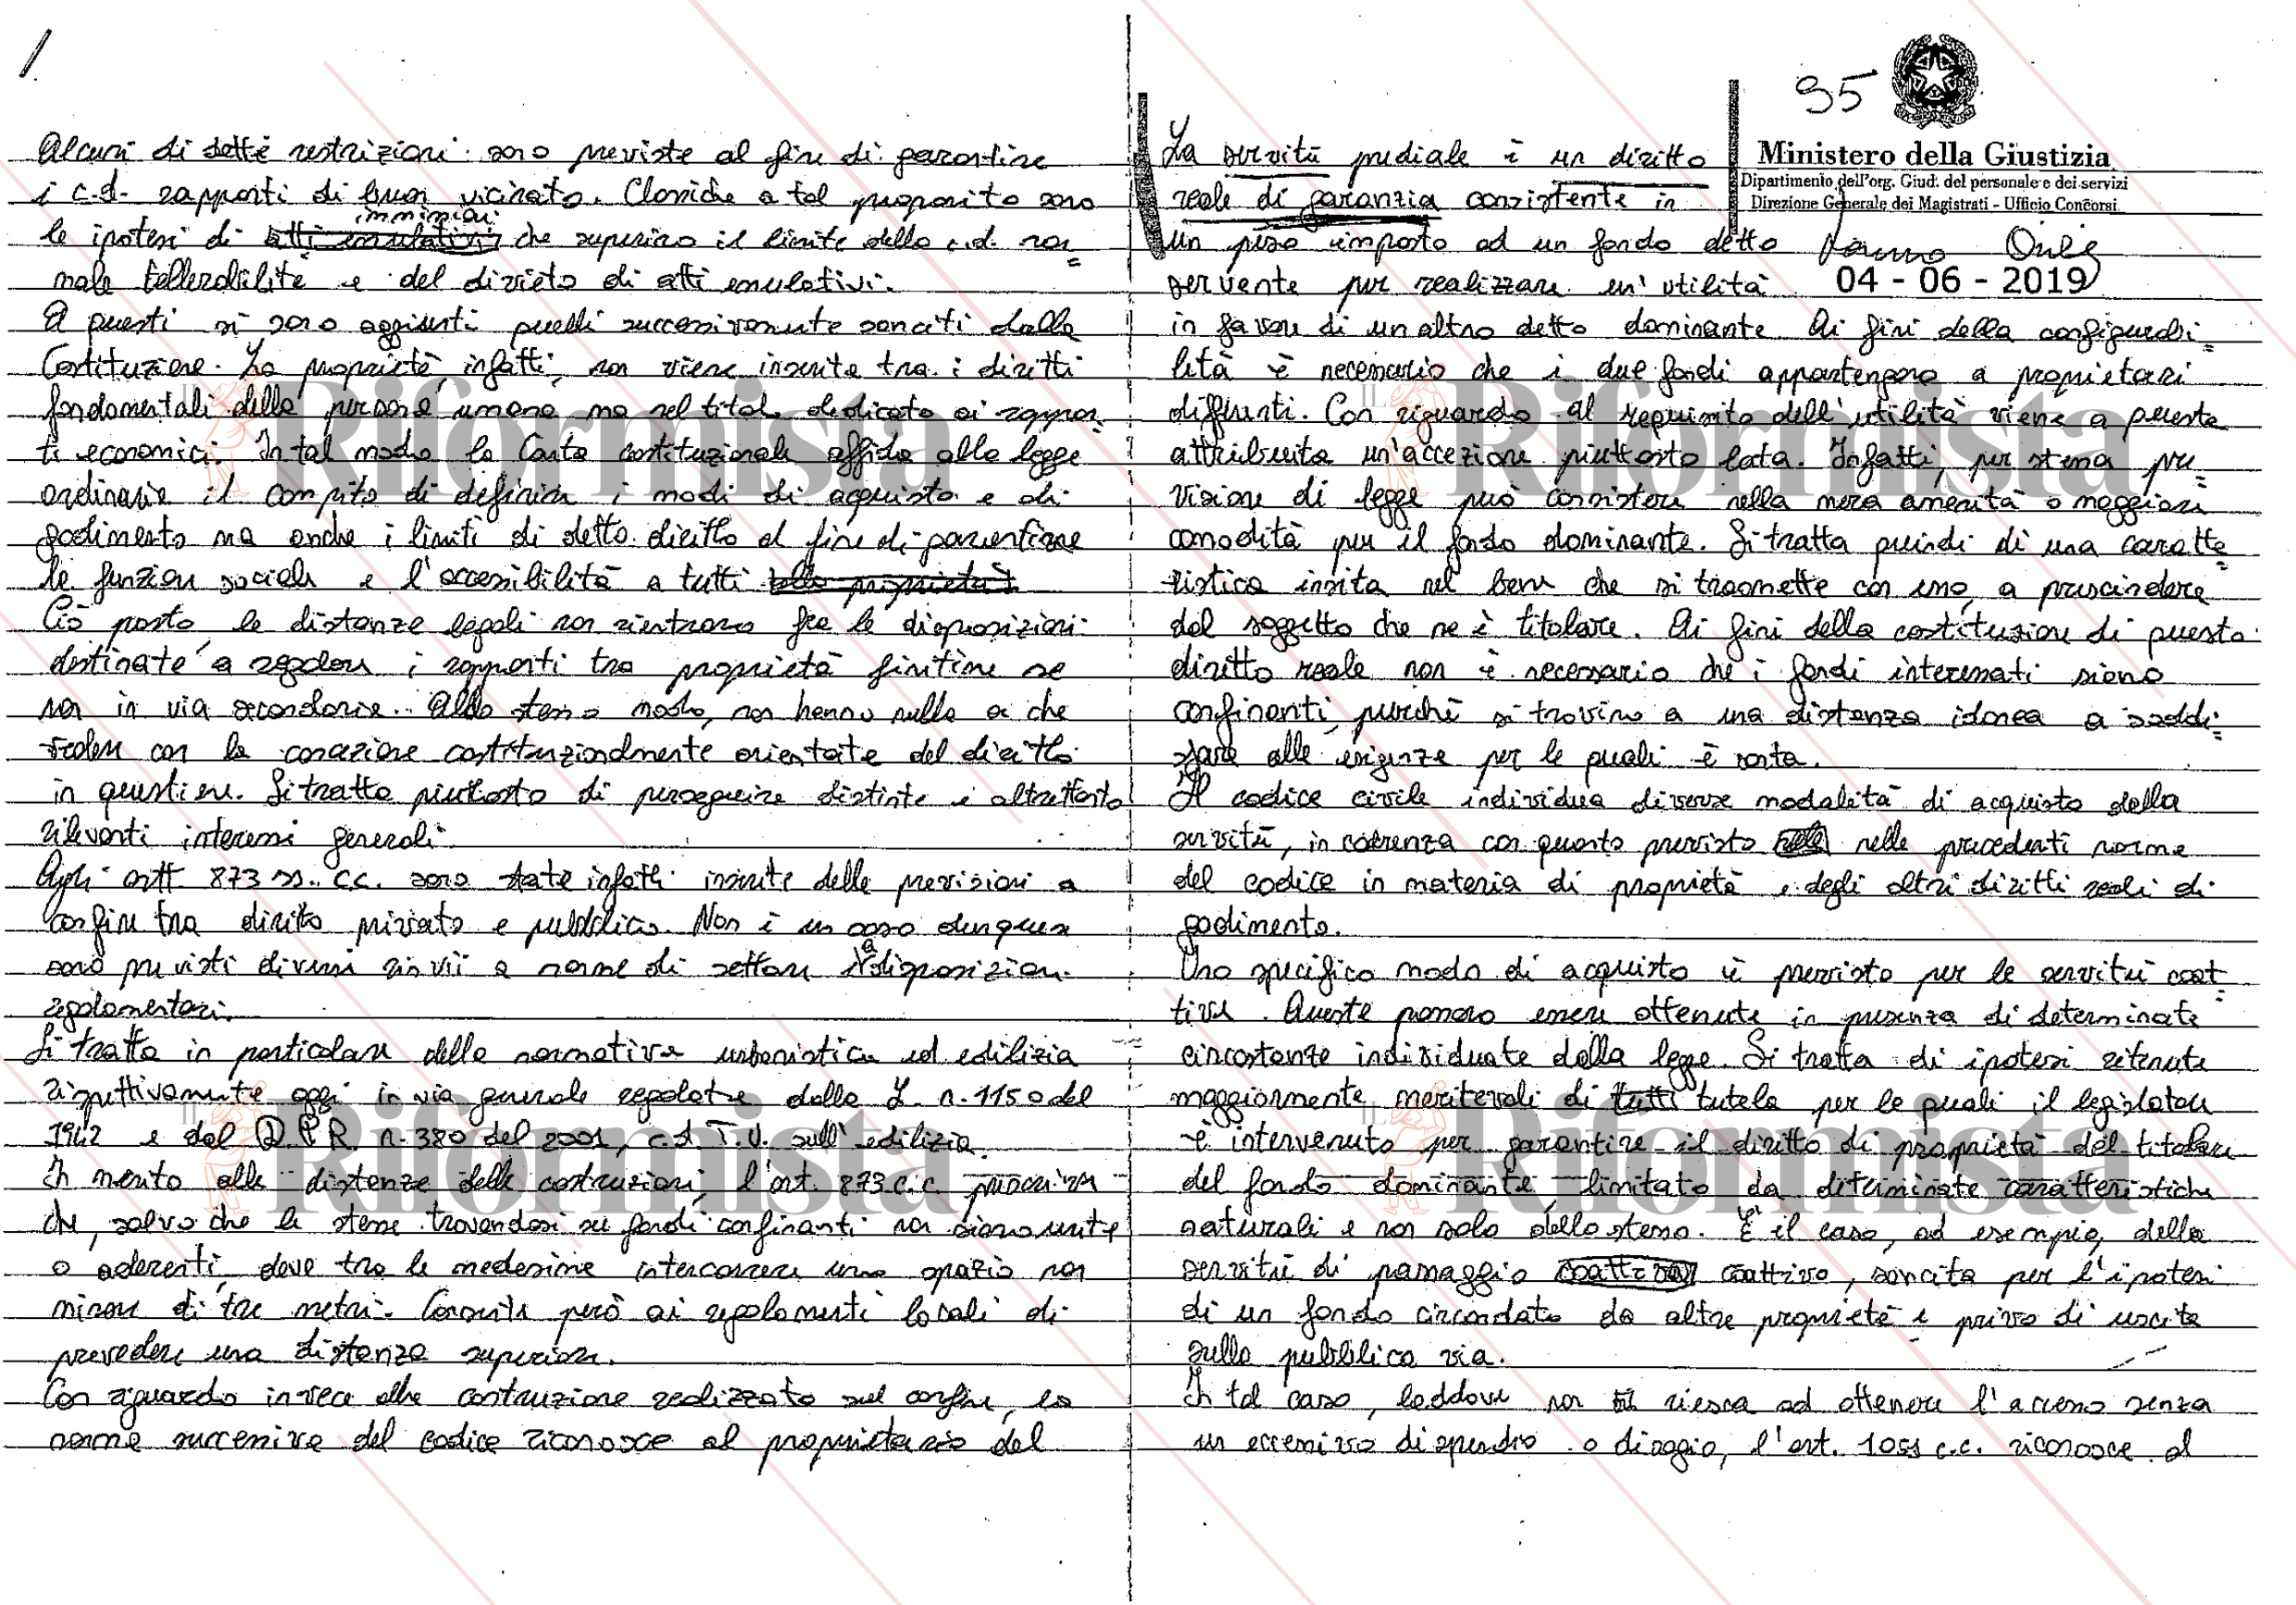 1
Alcuni di dette restrizioni sono previste al fine di garantire
i c.d. rapporti di buon vicinato. Classiche a tal proposito sono
immissioni
le ipotesi di atti emulativi che superino il limite della c.d. nor=
male tollerabilità e del divieto di atti emulativi.
A questi si sono aggiunti quelli successivamente sanciti dalla
Costituzione. La proprietà, infatti, non viene inserita tra i diritti
fondamentali della persona umana ma nel titolo dedicato ai rappor=
ti economici. In tal modo la Carta costituzionale affida alla legge
ordinaria il compito di definire i modi di acquisto e di
godimento ma anche i limiti di detto diritto al fine di garantirne
la funzione sociale e l'accessibilità a tutti
Ciò posto, le distanze legali non rientrano fra le disposizioni
destinate a regolare i rapporti tra proprietà finitime se
non in via secondaria. Allo stesso modo, non hanno nulla a che
vedere con la concezione costituzionalmente orientata del diritto
in questione. Si tratta piuttosto di perseguire distinti e altrettanto
rilevanti interessi generali.
Agli artt. 873 ss. c.c. sono state infatti inserite delle previsioni a
confine tra diritto privato e pubblico. Non è un caso dunque
sono previsti diversi rinvii a norme di settore a disposizioni
regolamentari.
Si tratta in particolare della normativa urbanistica ed edilizia
rispettivamente oggi in via generale regolate dalla L. n. 1150 del
1942 e dal D.P.R. n. 380 del 2001, c.d. T.U. sull'edilizia.
In merito alle distanze delle costruzioni, l'art. 873 c.c. prescrive
che, salvo che le stesse trovandosi su fondi confinanti non siano unite
o aderenti, deve tra le medesime intercorrere uno spazio non
minore di tre metri. Consente però ai regolamenti locali di
prevedere una distanza superiore.
Con riguardo invece alla costruzione realizzata sul confine, le
norme successive del codice riconosce al proprietario del
95
Ministero della Giustizia
Dipartimento dell'org. Giud. del personale e dei servizi
Direzione Generale dei Magistrati - Ufficio Concorsi
04 - 06 - 2019
La servitù prediale è un diritto
reale di garanzia consistente in
un peso imposto ad un fondo detto
servente per realizzare un'utilità
in favore di un altro detto dominante. Ai fini della configurabi=
lità è necessario che i due fondi appartengano a proprietari
differenti. Con riguardo al requisito dell'utilità viene a questa
attribuita un'accezione piuttosto lata. Infatti, per stessa pre=
visione di legge può consistere nella mera amenità o maggiore
comodità per il fondo dominante. Si tratta quindi di una caratte=
ristica insita nel bene che si trasmette con esso, a prescindere
dal soggetto che ne è titolare. Ai fini della costituzione di questo
diritto reale non è necessario che i fondi interessati siano
confinanti, purché si trovino a una distanza idonea a soddi=
sfare alle esigenze per le quali è sorta.
Il codice civile individua diverse modalità di acquisto della
servitù, in coerenza con quanto previsto nelle precedenti norme
del codice in materia di proprietà e degli altri diritti reali di
godimento.
Uno specifico modo di acquisto è previsto per le servitù coat=
tive. Queste possono essere ottenute in presenza di determinate
circostanze individuate dalla legge. Si tratta di ipotesi ritenute
maggiormente meritevoli di tutti tutela per le quali il legislatore
è intervenuto per garantire il diritto di proprietà del titolare
del fondo dominante limitato da determinate caratteristiche
naturali e non solo dello stesso. È il caso, ad esempio, della
servitù di passaggio coattivo, sancita per l'ipotesi
di un fondo circondato da altre proprietà e privo di uscita
sulla pubblica via.
In tal caso, laddove non riesca ad ottenere l'accesso senza
un eccessivo dispendio o disagio, l'art. 1051 c.c. riconosce al
IL Riformista
IL Riformista
IL Riformista
IL Riformista